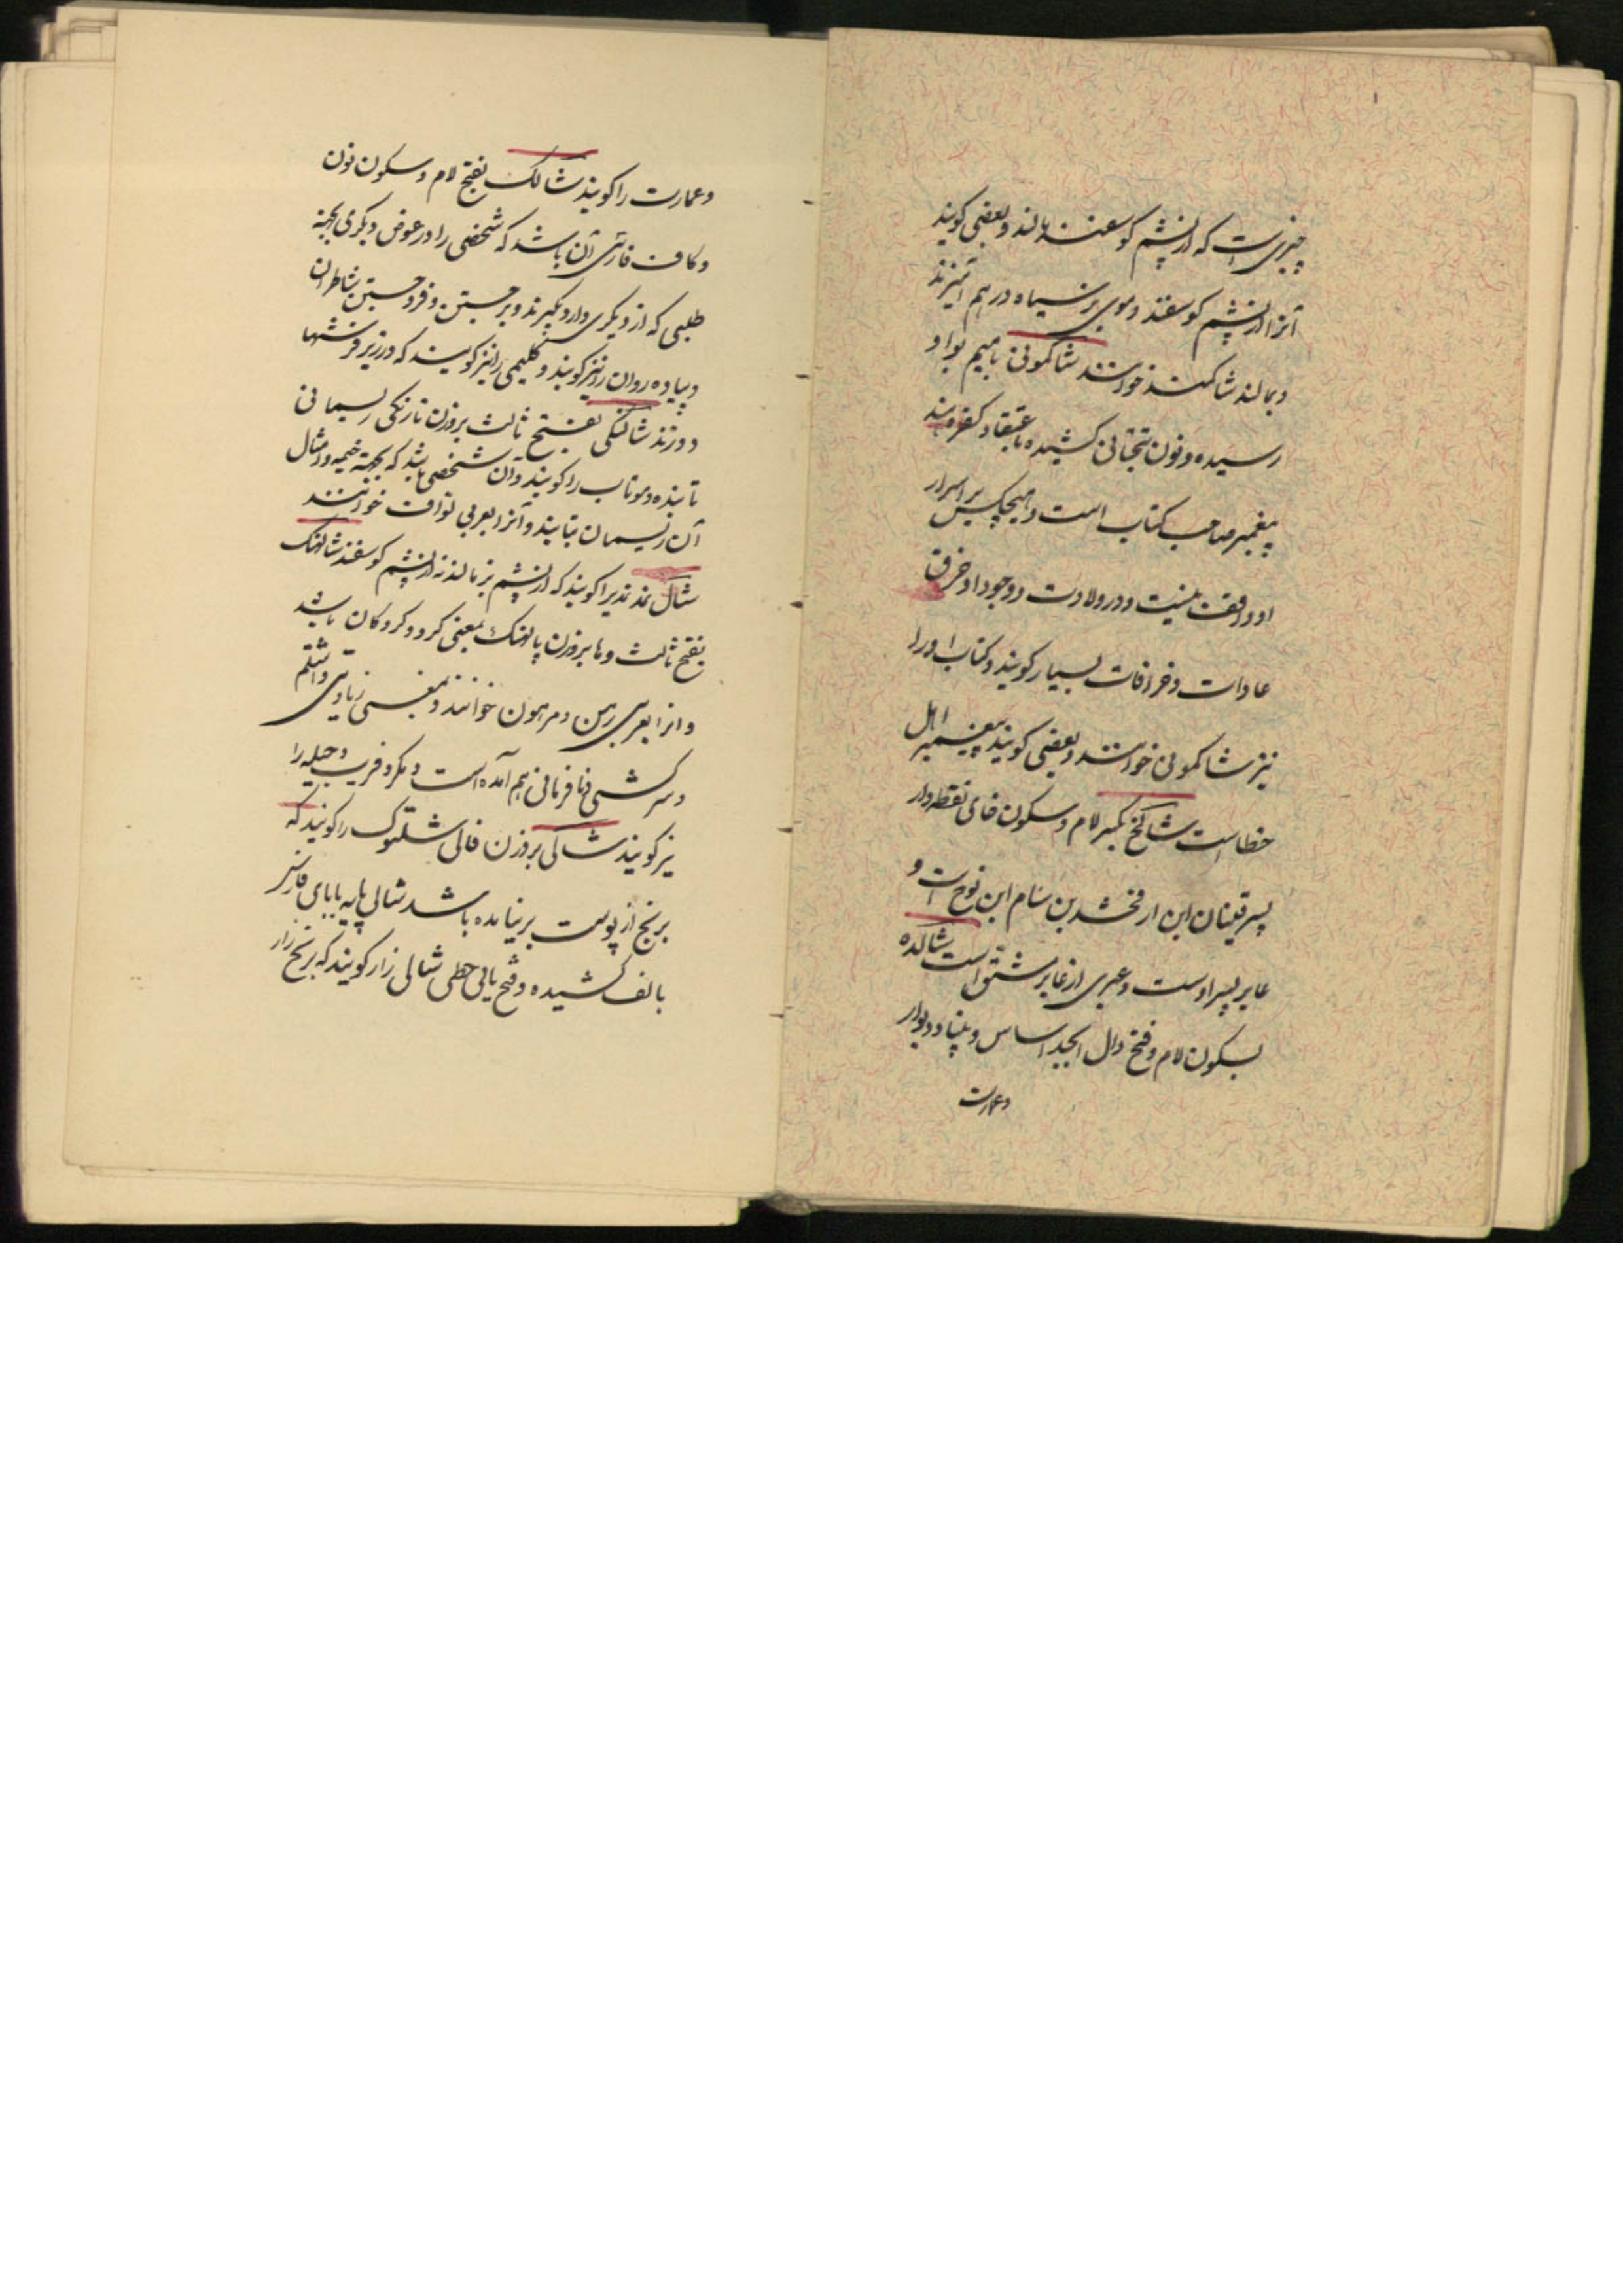 چیزی است که از پشم گوسفند مالند و بعضی گویند
آنرا از پشم گوسفند و موی بز سیاه در هم آمیزند
و بمالند شاکمند خوانند شاکمونی با میم بواو
رسیده و نون بتحتانی کشیده باعتقاد کفره هند
پیغمبر صاحب کتاب است و هیچکس بر اسرار
او واقف نیست و در ولادت و وجود او خرق
عادات و خرافات بسیار گویند و کتاب او را
نیز شاکمونی خوانند و بعضی گویند پیغمبر اهل
خطاست شالخ بکسر لام و سکون خای نقطه دار
پسر قینان ابن ارفخشد بن سام ابن نوح است و
عابر پسر اوست و عبری از عابر مشتق است شالده
بسکون لام و فتح دال ابجد اساس و بنیاد دیوار
و عمارت
و عمارت را گویند شالنک بفتح لام و سکون نون
و کاف فارسی آن باشد که شخصی را در عوض دیگری بجهة
طلبی که از دیگری دارد بگیرند و برجستن و فروجستن شاطران
و پیاده روان را نیز گویند و گلیمی را نیز گویند که در زیر فرشها
دوزند شالنکی بفتح ثالث بروزن نارنکی ریسمانی
تابنده و موتاب را گویند و آن شخصی باشد که بجهة خیمه و امثال
آن ریسمان بتابند و آنرا بعربی نواف خوانند
شال نمد نمدیرا گویند که از پشم بز مالند نه از پشم گوسفند شالهنک
بفتح ثالث و ها بروزن پالهنک بمعنی گرو و گروکان باشد
و انرا بعربی رهن و مرهون خوانند و بمعنی زیادتی و اشتلم
و سرکشی و نافرمانی هم آمده است و مکر و فریب و حیله را
نیز گویند شالی بروزن قالی شلتوک را گویند که
برنج از پوست برنیامده باشد شالی پایه با بای فارسی
بالف کشیده و فتح یای حطی شالی زار گویند که برنج زار